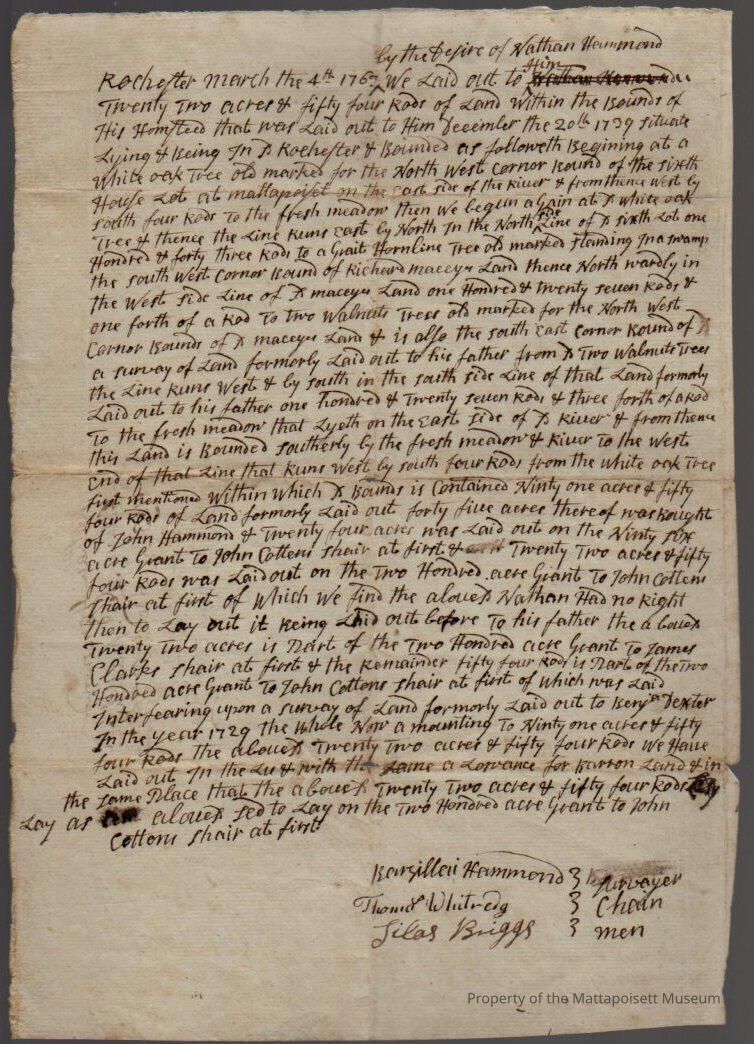 by the Desire of Nathan Hammond
Rochester March the 4th 1767 We Laid out to Him
Twenty Two acres & fifty four Rods of Land Within the Bounds of
His Homsted that was Laid out to Him December the 20th 1739 situate
Lying & Being In sd Rochester & Bounded as followeth Begining at a
White oak Tree old marked for the North West Cornor Bound of the sixth
House Lot at mattapoiset on the East side of the River & from thence West by
south four Rods To the fresh meadow then We begun again at sd white oak
Tree & thence the Line Runs East by North In the North side Line of sd sixth Lot one
Hundred & forty three Rods to a Grait Hornline Tree old marked standing In a swamp
the south West Cornor Bound of Richard maceys Land thence North wardly in
the West side Line of sd maceys Land one Hundred & twenty seuen Rods &
one forth of a Rod To two Walnuts Trees old marked for the North West
Cornor Bounds of sd maceys Land & is also the south East Cornor Bound of
a suruay of Land formorly Laid out to his father from sd Two Walnuts Trees
the Line Runs West & by south in the south side Line of that Land formorly
Laid out to his father one hondred & Twenty seuen Rods & three forth of a Rod
To the fresh meadow that Lyeth on the East side of sd Riuer & from thence
this Land is Bounded southerly by the fresh meadow & Riuer To the West
End of that Line that Runs West by south four Rods from the white oak Tree
first mentioned Within which sd Bounds is Contained Ninty one acres & fifty
four Rods of Land formorly Laid out forty fiue acres thereof was Bought
of John Hammond & Twenty four acres was Laid out on the Ninty six
acre Grant To John Cottens shair at first & Twenty Two acres & fifty
four Rods was Laid out on the Two Hondred acre Grant To John Cottens
shair at first of Which We find the aboued Nathan Had no Right
then to Lay out it Being Laid out before To his father the aboued
Twenty Two acres is Part of the Two Hondred acre Grant To James
Clarks shair at first & the Remainder fifty four Rods is Part of the Two
Hondred acre Grant To John Cottons shair at first of Which was Laid
Interfearing upon a suruay of Land formorly Laid out to Benja Dexter
In the year 1729 the Whole Now a mounting To Ninty one acres & fifty
four Rods the aboued Twenty Two acres & fifty four Rods We Haue
Laid out In the Lu & with the same a Lowance for Barron Land & in
the same Place that the aboued Twenty Two acres & fifty four Rods Lay
Lay as aboued sed to Lay on the Two Hondred acre Grant to John
Cottons shair at first
Barzillai Hammond } surueyer
Thomas Whitredg } Chain
Silas Briggs } men
Property of the Mattapoisett Museum